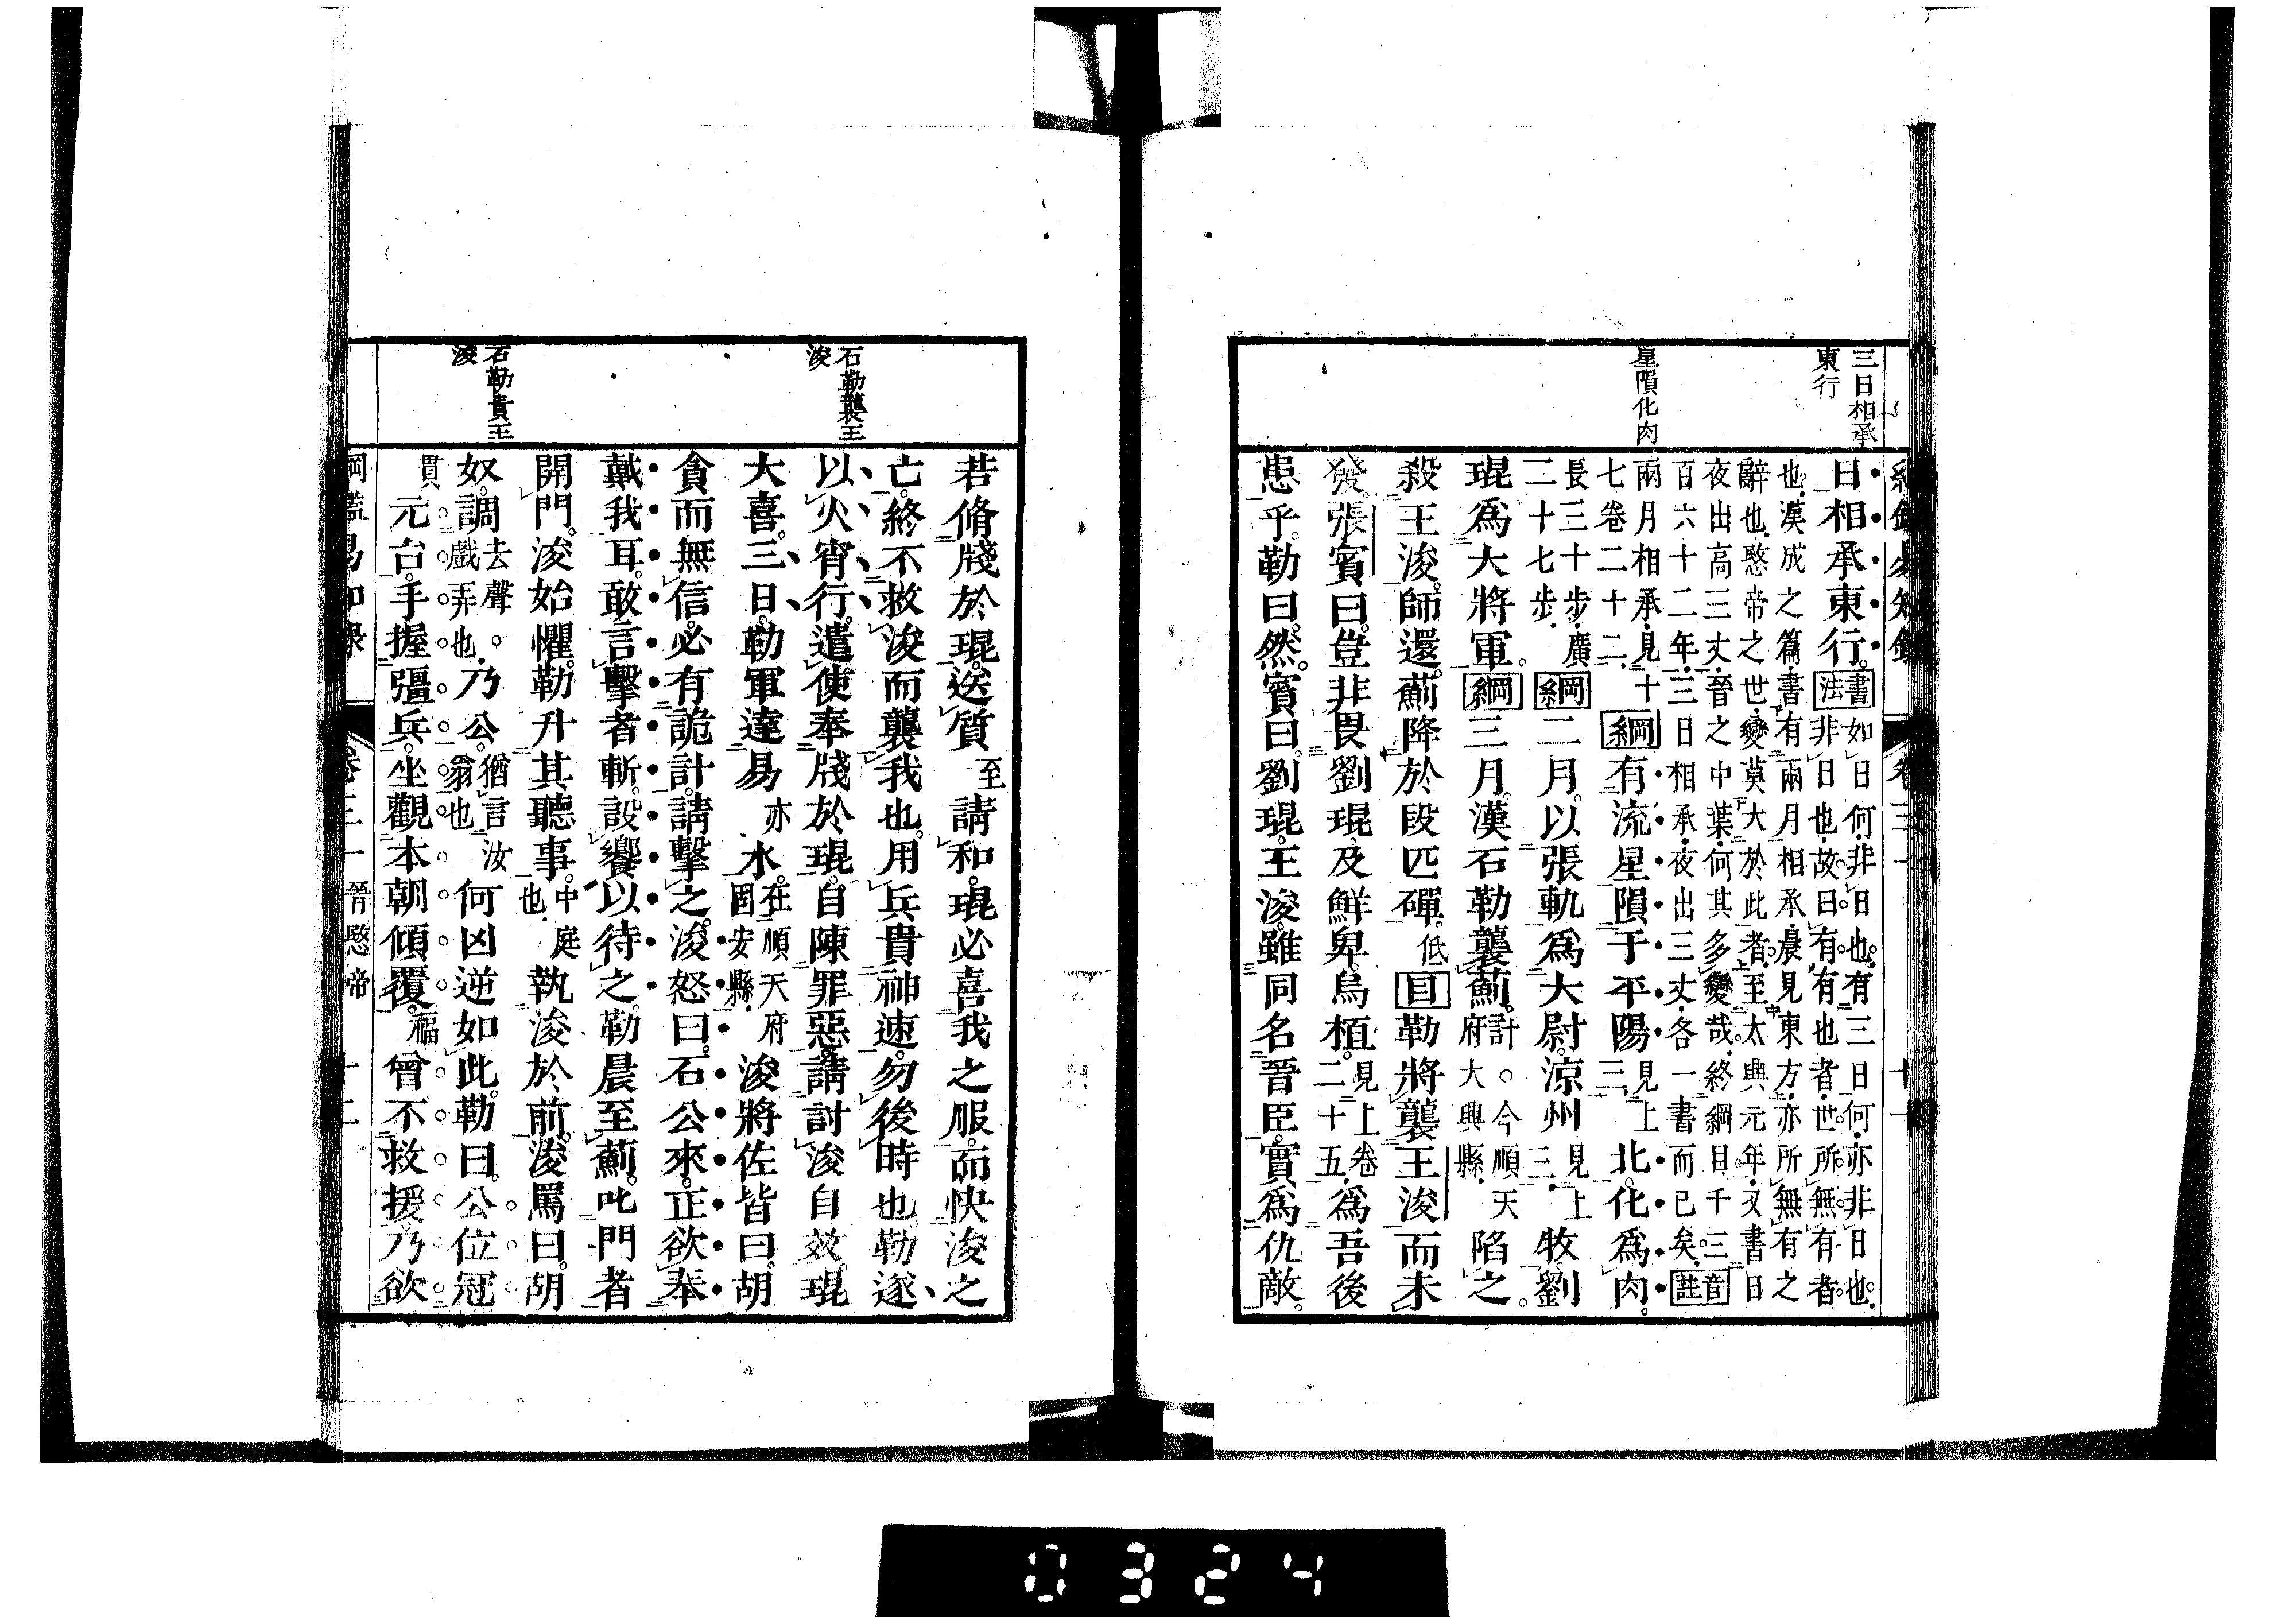 三日相承
東行
星隕化肉
日相承東行。書法如日何非日也。有三日何亦非日也。
非日也故曰有有也者世所無有者
也漢成之篇書有兩月相承晨見東方亦所無有之
辭也愍帝之世變莫大於此者至太興元年又書日
夜出高三丈晉之中葉何其多變哉終綱目千三音
百六十二年三日相承夜出三丈各一書而已矣註
兩月相承見十
七卷二十二綱有流星隕于平陽見上三北化爲肉。
長三十步廣
二十七步綱二月。以張軌爲大尉。涼州見上三牧。劉
琨爲大將軍。綱三月。漢石勒襲薊。計。今順天府大興縣陷之。
殺王浚。師還。薊降於段匹磾。低目勒將襲王浚而未
發。張賓曰。豈非畏劉琨及鮮卑。烏桓。見上卷二十五爲吾後
患乎。勒曰。然。賓曰。劉琨。王浚。雖同名晉臣。實爲仇敵。
石勒襲王
浚
石勒責王
浚
若脩牋於琨。送質至請和。琨必喜我之服。而快浚之
亡。終不救浚而襲我也。用兵貴神速。勿後時也。勒遂
以火宵行。遣使奉牋於琨。自陳罪惡。請討浚自效。琨
大喜。三日。勒軍達易亦水。在順天府固安縣浚將佐皆曰。胡
貪而無信。必有詭計。請擊之。浚怒曰。石公來。正欲奉
戴我耳。敢言擊者斬。設饗以待之。勒晨至薊。叱門者
開門。浚始懼。勒升其聽事。中庭也執浚於前。浚罵曰。胡
奴。調去聲。戲弄也乃公。猶言汝翁也何凶逆如此。勒曰。公位冠
貫元台。手握彊兵。坐觀本朝傾覆。福曾不救援。乃欲
綱鑑易知錄 卷三一 晉愍帝 十二